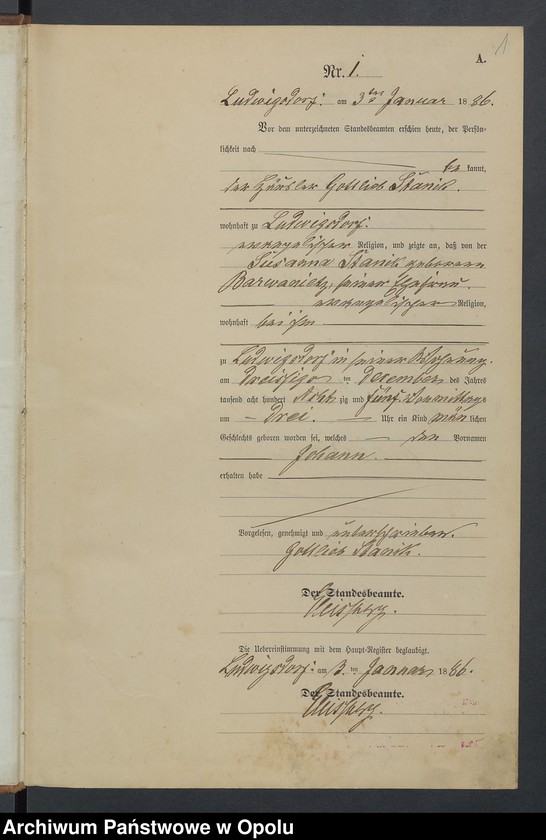 1
A.
Nr. 1.
Ludwigsdorf am 3ten Januar 1886.
Vor dem unterzeichneten Standesbeamten erschien heute, der Persön-
lichkeit nach
be kannt,
der Häusler Gottlieb Stanik.
wohnhaft zu Ludwigsdorf
evangelischer Religion, und zeigte an, daß von der
Susanna Stanik geborenen
seiner Ehefrau
evangelischer Religion,
wohnhaft bei ihm
zu Ludwigsdorf in seiner Wohnung.
am dreissigsten ten Dezember des Jahres
tausend acht hundert Acht zig und fünf Vormittags
um drei. Uhr ein Kind männ lichen
Geschlechts geboren worden sei, welches den Vornamen
Johann.
erhalten habe
Vorgelesen, genehmigt und unterschrieben.
Gottlieb Stanik.
Der Standesbeamte.
Die Uebereinstimmung mit dem Haupt-Register beglaubigt.
Ludwigsdorf am 3. ten Januar 1886.
Der Standesbeamte.
Archiwum Państwowe w Opolu